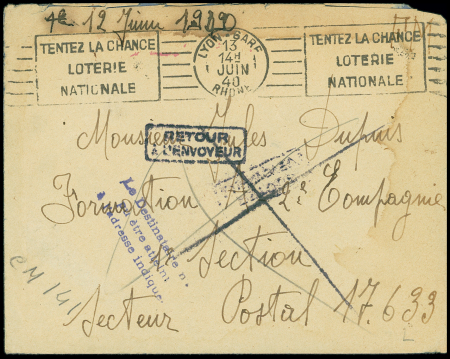 12 Juin 1940
TENTEZ LA CHANCE
LOTERIE
NATIONALE
LYON GARE
13
14H
JUIN
40
RHONE
TENTEZ LA CHANCE
LOTERIE
NATIONALE
Monsieur Jules Dupuis
RETOUR
A L'ENVOYEUR
Formation 2e Compagnie
Le Destinataire n.
être atteint
adresse indiqu
Section
CM 141
Secteur Postal 17.633